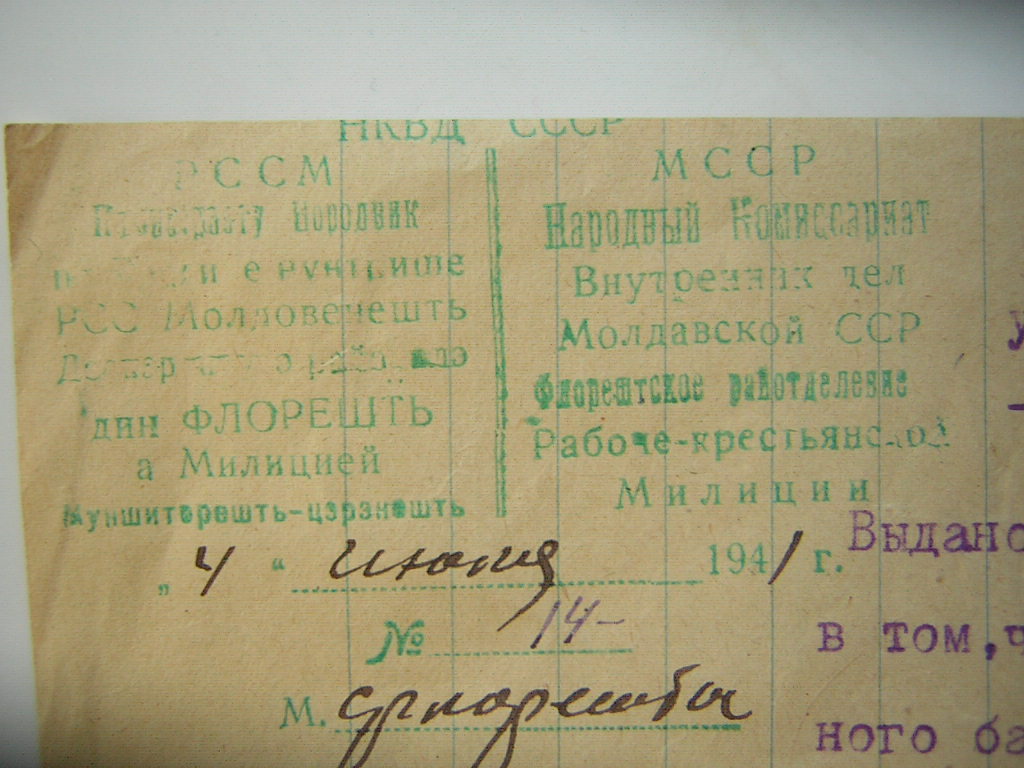 НКВД СССР
РССМ
Нородник
РСС Молдовенешть
дин ФЛОРЕШТЬ
а Милицией
Муншиторешть-цэрэнешть
МССР
Народный Комиссариат
Внутренних дел
Молдавской ССР
Флорештское райотделение
Рабоче-крестьянской
Милиции
„ 4 “ июня 1941 г.
№ 14-
м. Флорешты
Выдано
в том,ч
ного ба